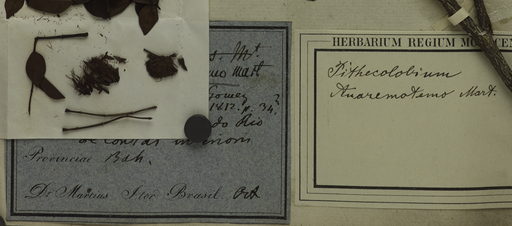 s. Mt
mo mart
Gomez
1812. p. 34?
do Rio
de Contas interioris
Provinciae Bah.
Dr Martius Iter Brasil. Oct
HERBARIUM REGIUM MO
Pithecolobium
Avaremotemo Mart.